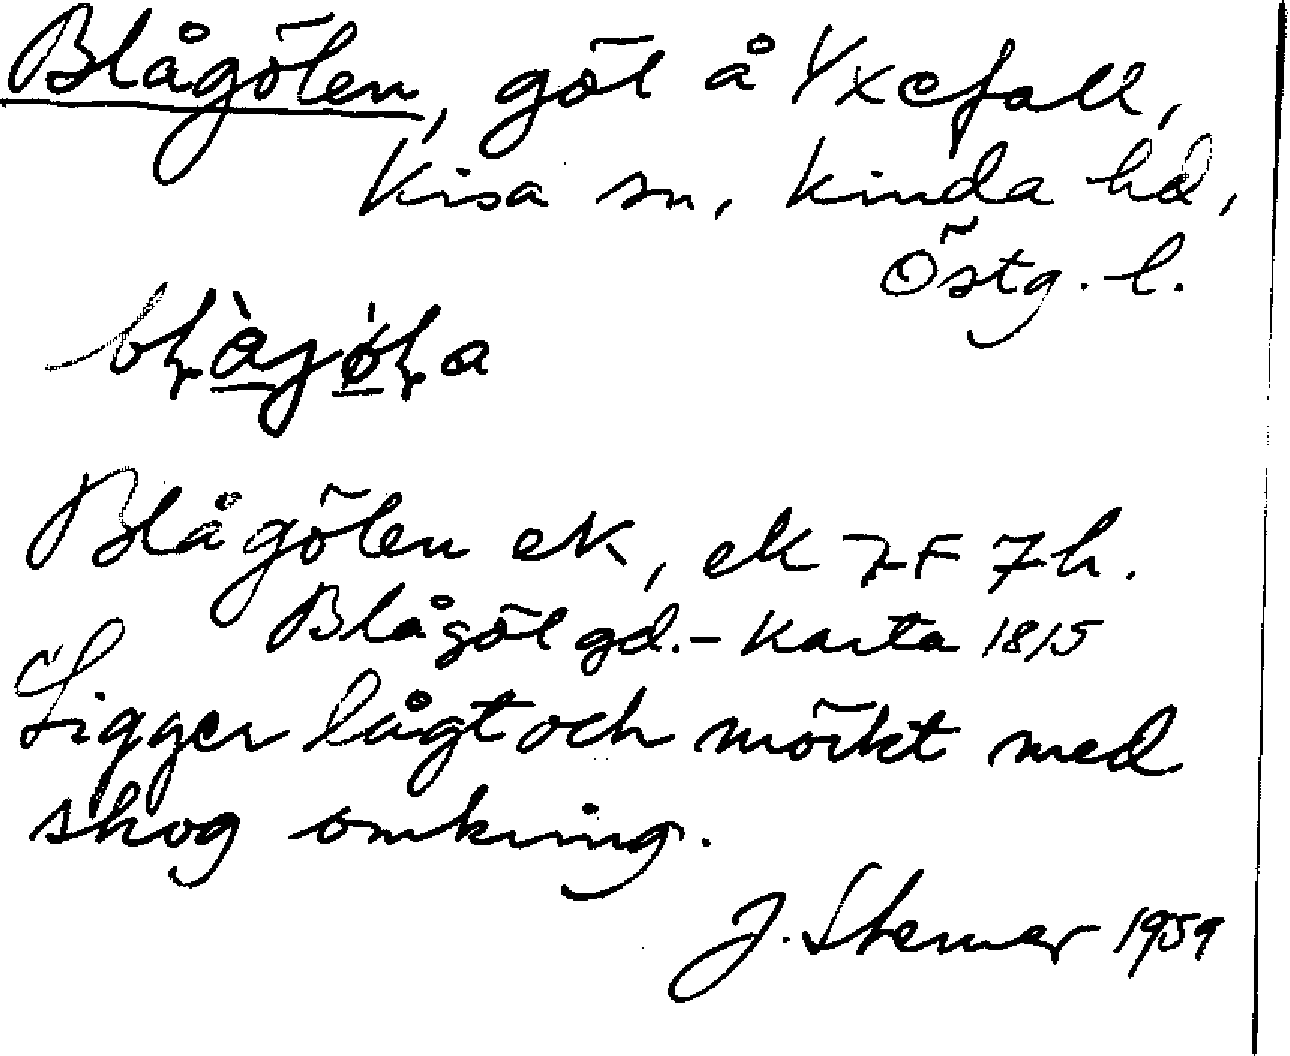 Blågölen, göl å Yxefall,
Kisa sn, Kinda hd,
Östg. l.
Blågölen ek, ek 7F 7h.
Blågöl gd. - Karta 1815
Ligger lågt och mörkt med
skog omkring.
J. Sterner 1959